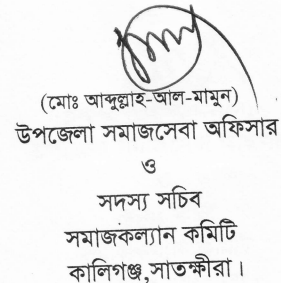 (মোঃ আব্দুল্লাহ-আল-মামুন)
উপজেলা সমাজসেবা অফিসার
ও
সদস্য সচিব
সমাজকল্যান কমিটি
কালিগঞ্জ,সাতক্ষীরা।